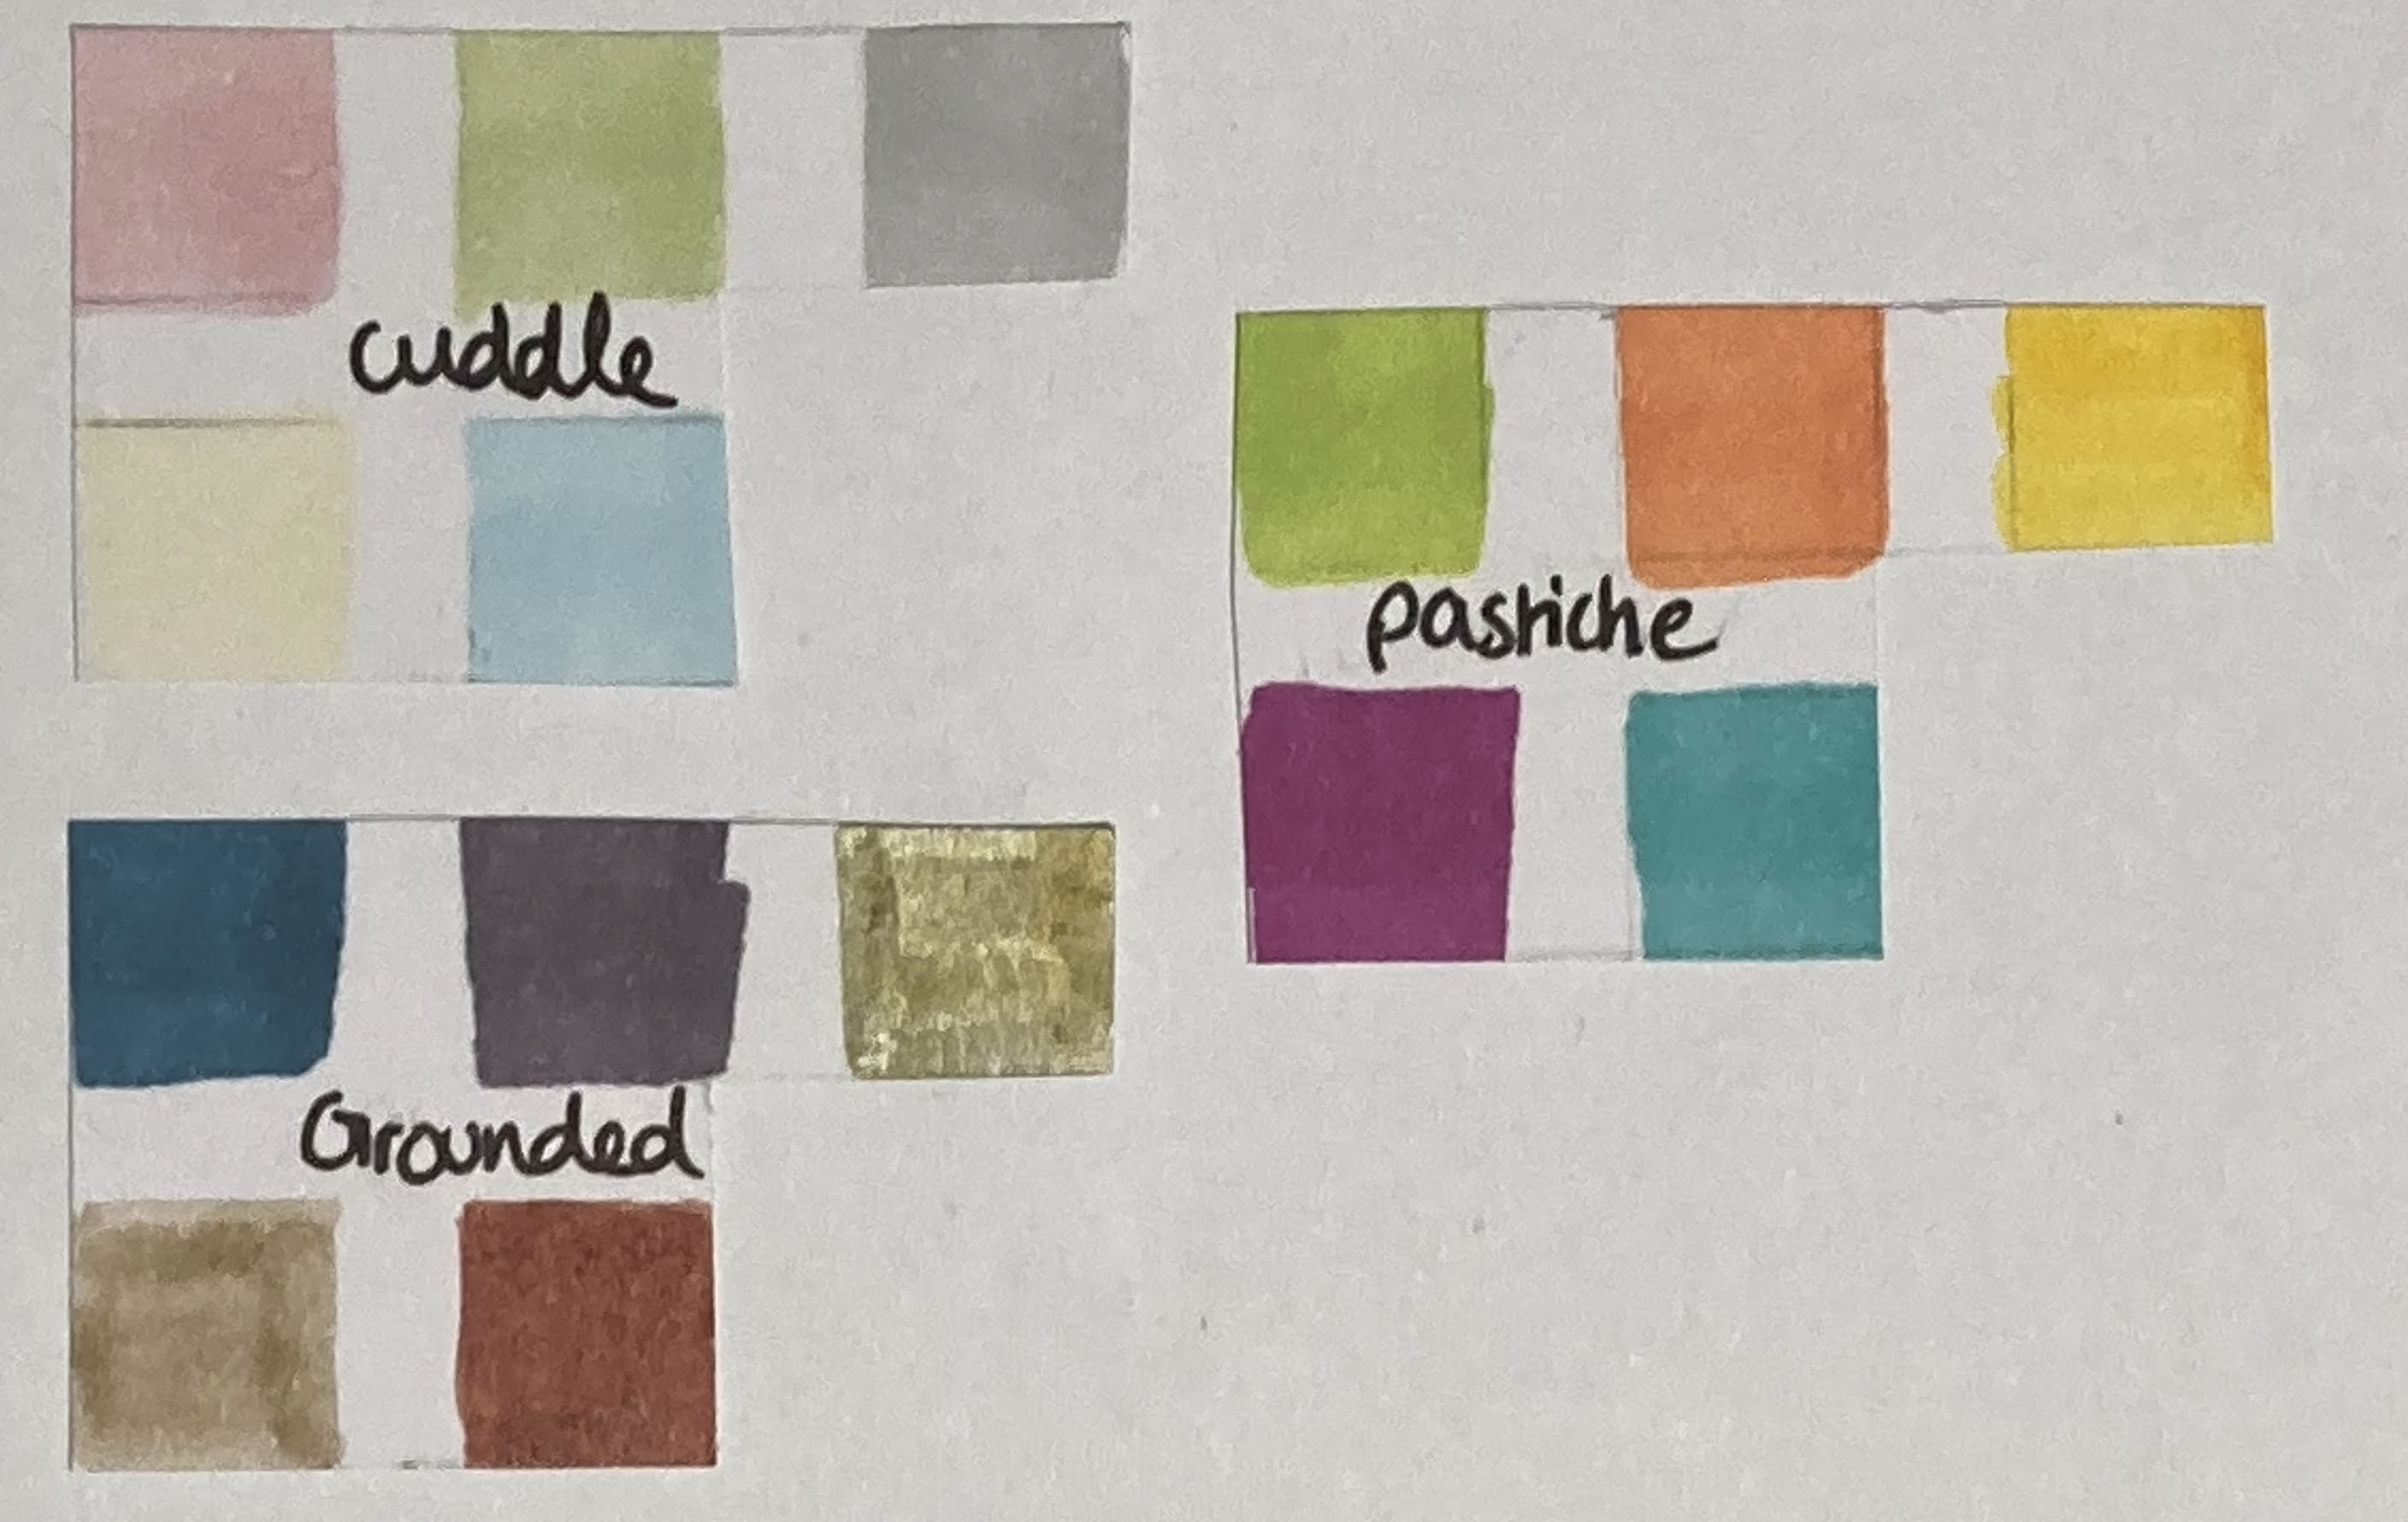 cuddle
pastiche
Grounded